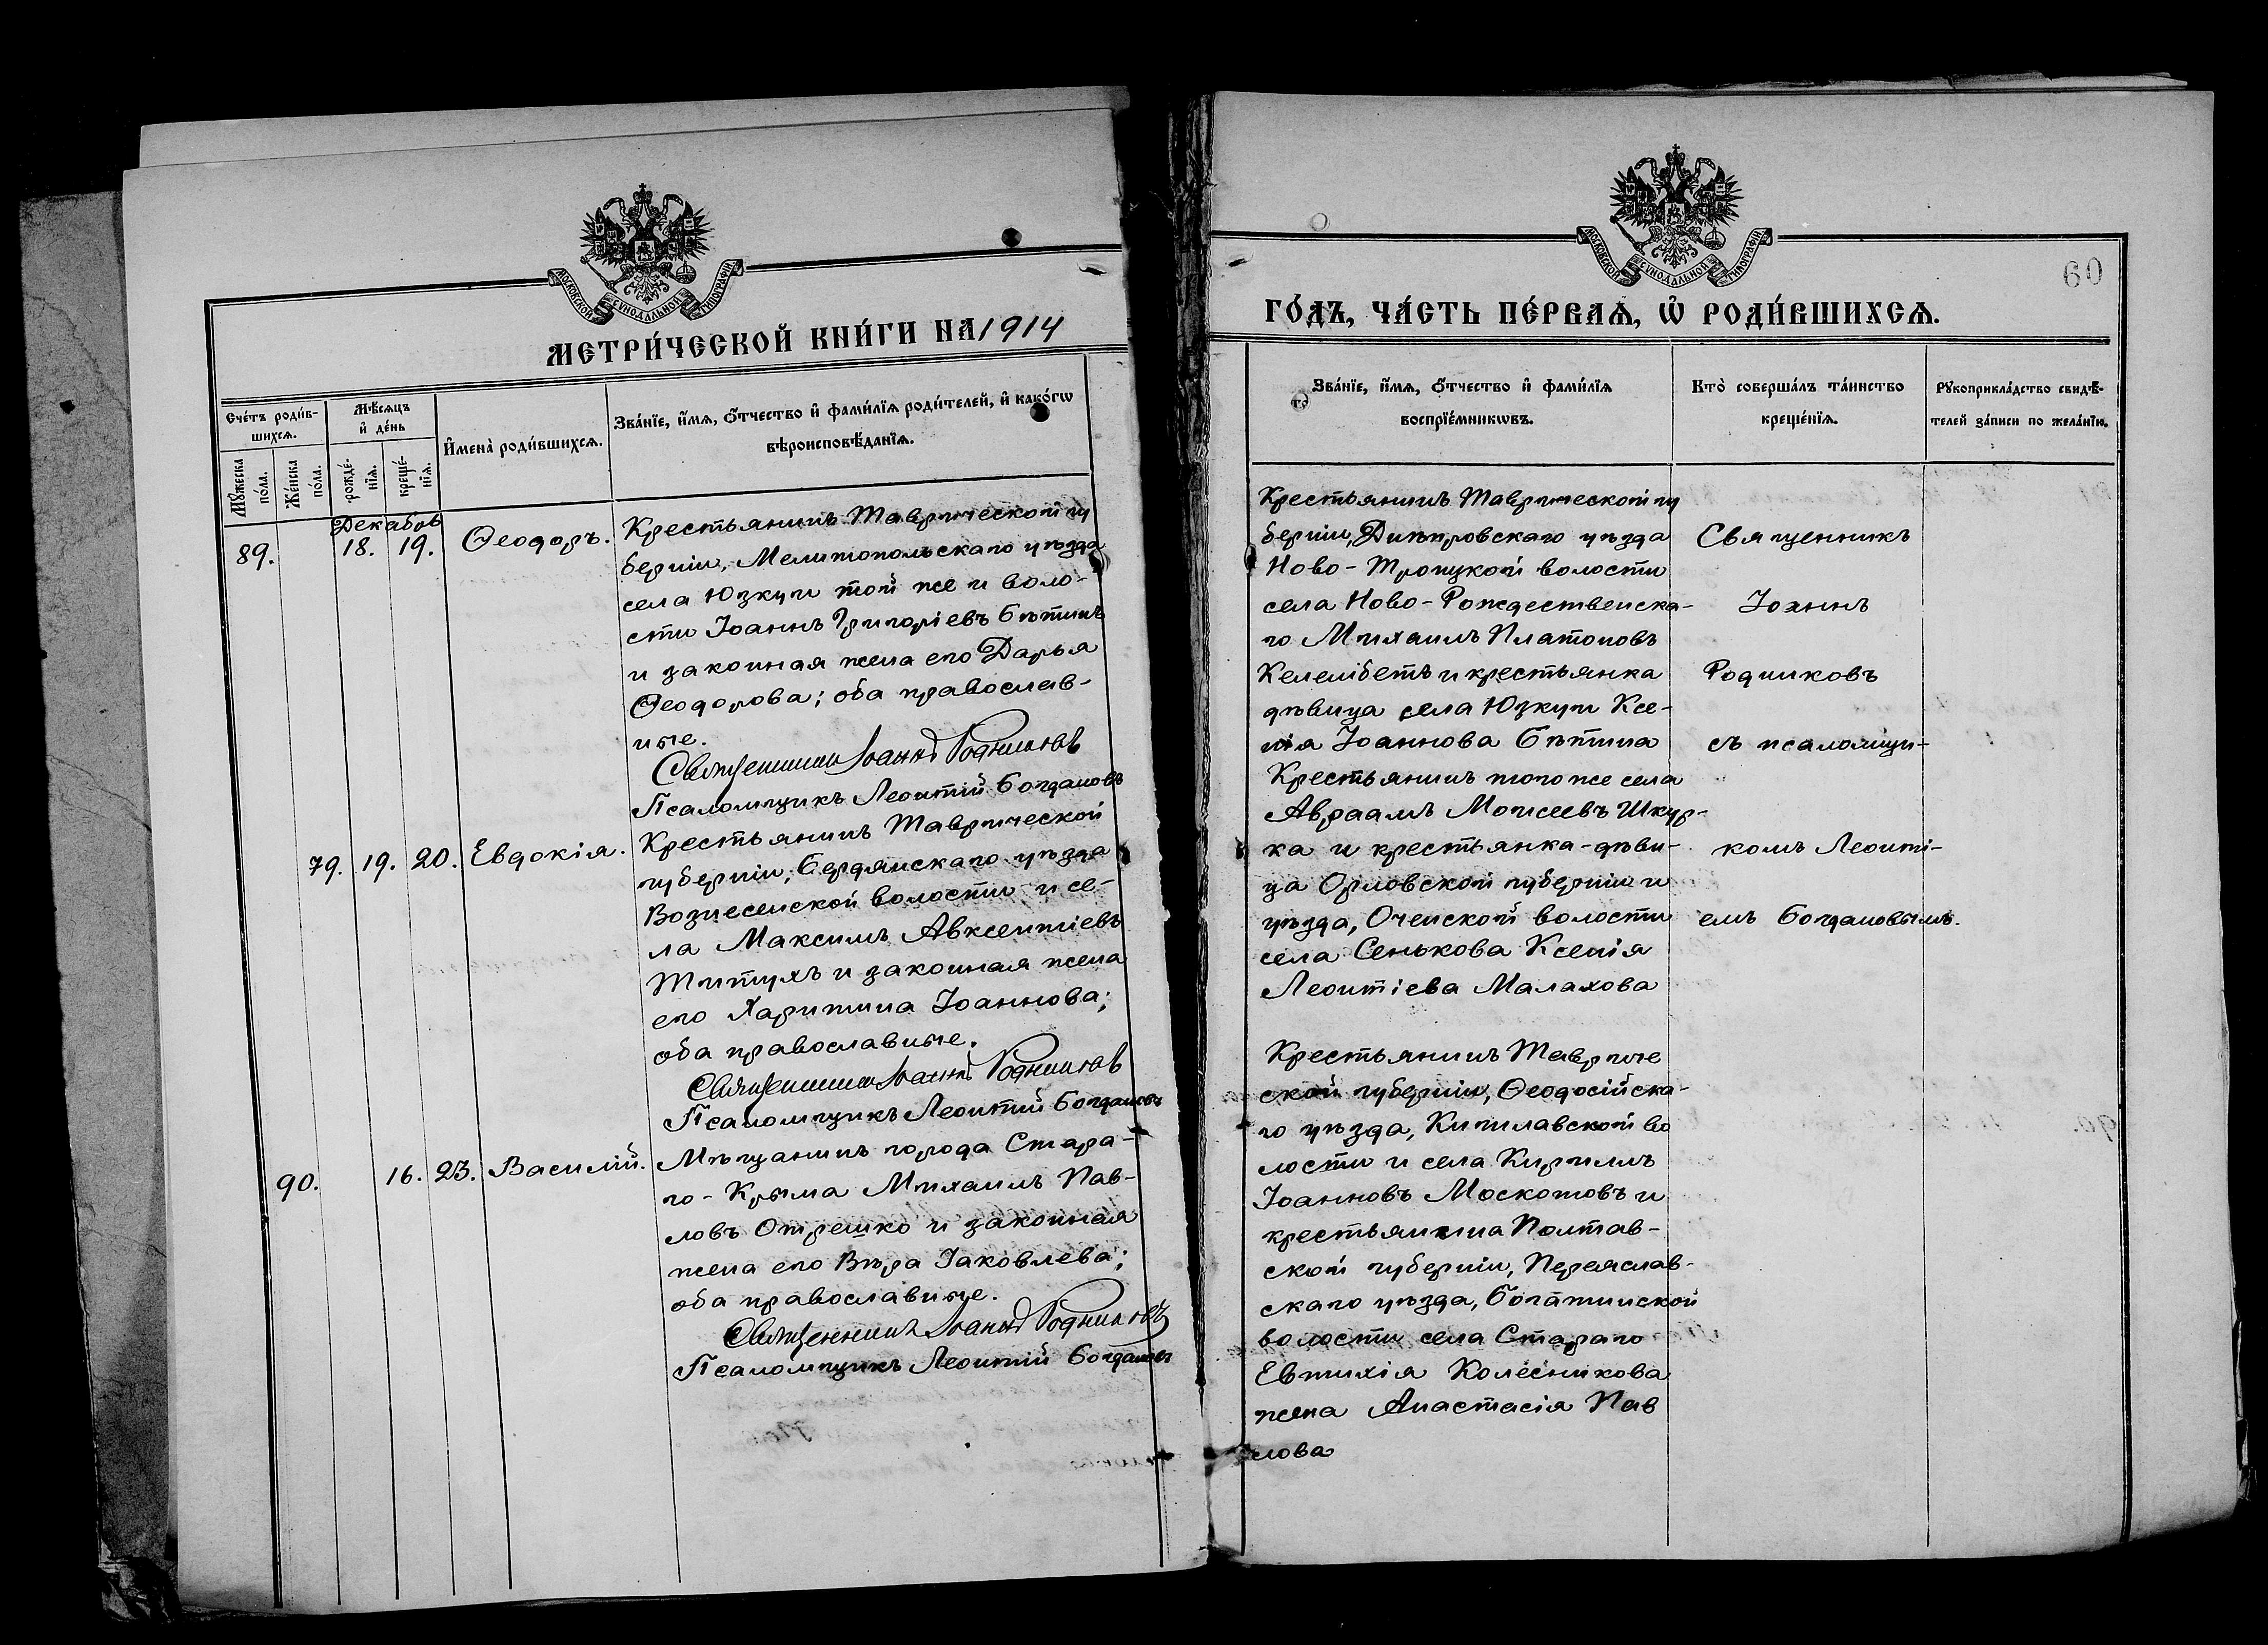 МОСКОВСКОЙ СѴНОДАЛЬНОЙ ТИПОГРАФІИ
МЕТРИ́ЧЕСКОЙ КНИ́ГИ НА 1914
Сче́тъ роди́в-
шихсѧ.
Мѣ́сѧцъ
и҆ де́нь
И҆мена̀ роди́вшихсѧ.
Зва́нїе, и҆́мѧ, ѻ҆́тчество и҆ фами́лїѧ роди́телей, и҆ како́гѡ
вѣроисповѣ́данїѧ.
Мꙋ́жеска
по́ла.
Же́нска
по́ла.
рожде́-
нїѧ.
креще́-
нїѧ.
Декабрь
89. 18. 19. Ѳеодоръ.
Крестьянинъ Таврической гу
берніи, Мелитопольскаго уѣзда
села Юзкуи той же и воло-
сти Іоаннъ Григоріевъ Бѣтинъ
и законная жена его Дарья
Ѳеодорова; оба православ-
ные.
Священникъ Іоаннъ Родниковъ
Псаломщикъ Леонтій Богдановъ
79. 19. 20. Евдокія.
Крестьянинъ Таврической
губерніи, Бердянскаго уѣзда
Вознесенской волости и се-
ла Максимъ Авксентіевъ
Титухъ и законная жена
его Харитина Іоаннова;
оба православные.
Священникъ Іоаннъ Родниковъ
Псаломщикъ Леонтій Богдановъ
90. 16. 23. Василій.
Мѣщанинъ города Стара-
го-Крыма Михаилъ Пав-
ловъ Отрешко и законная
жена его Вѣра Іаковлева;
оба православные.
Священникъ Іоаннъ Родниковъ
Псаломщикъ Леонтій Богдановъ
МОСКОВСКОЙ СѴНОДАЛЬНОЙ ТИПОГРАФІИ
60
ГО́ДЪ, ЧА́СТЬ ПЕ́РВАѦ, Ѡ҆ РОДИ́ВШИХСѦ.
Зва́нїе, и҆́мѧ, ѻ҆́тчество и҆ фами́лїѧ
воспрїе́мникѡвъ.
Кто̀ соверша́лъ та́инство
креще́нїѧ.
Рꙋкоприкла́дство свидѣ́-
телей за́писи по жела́нїю.
Крестьянинъ Таврической гу
берніи, Днѣпровскаго уѣзда
Ново-Троицкой волости
села Ново-Рождественска-
го Михаилъ Платоновъ
Келембетъ и крестьянка
дѣвица села Юзкуи Ксе-
нія Іоаннова Бѣтина
Крестьянинъ того же села
Авраамъ Моисеевъ Шкур-
ка и крестьянка-дѣви-
ца Орловской губерніи и
уѣзда, Оченской волости
села Сенькова Ксенія
Леонтіева Малахова
Крестьянинъ Тавриче
ской губерніи, Ѳеодосійска-
го уѣзда, волости и села Кириллъ
Іоанновъ Москотовъ и
крестьянина Полтав-
ской губерніи, Переяслав-
скаго уѣзда,
волости села Стараго
Евтихія Колесникова
жена Анастасія Пав
лова
Священникъ
Іоаннъ
Родниковъ
съ псаломщи-
комъ Леонті-
емъ Богдановымъ.